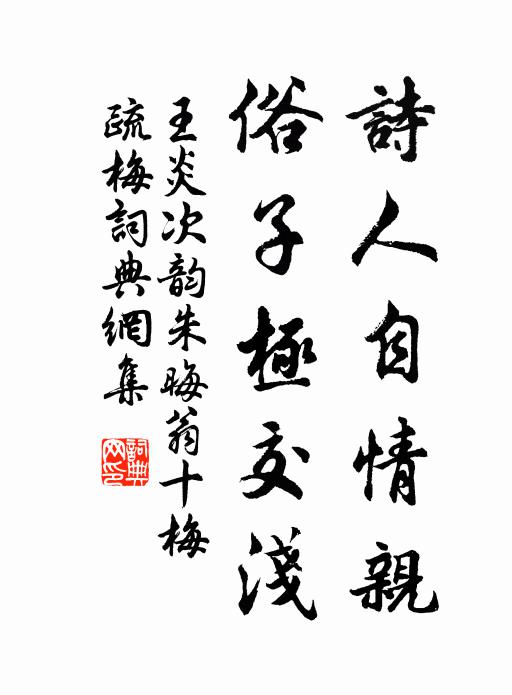 詩人自情親
俗子極交淺
王炎次韵朱晦翁十梅
疏梅詞典網集
詞典网印